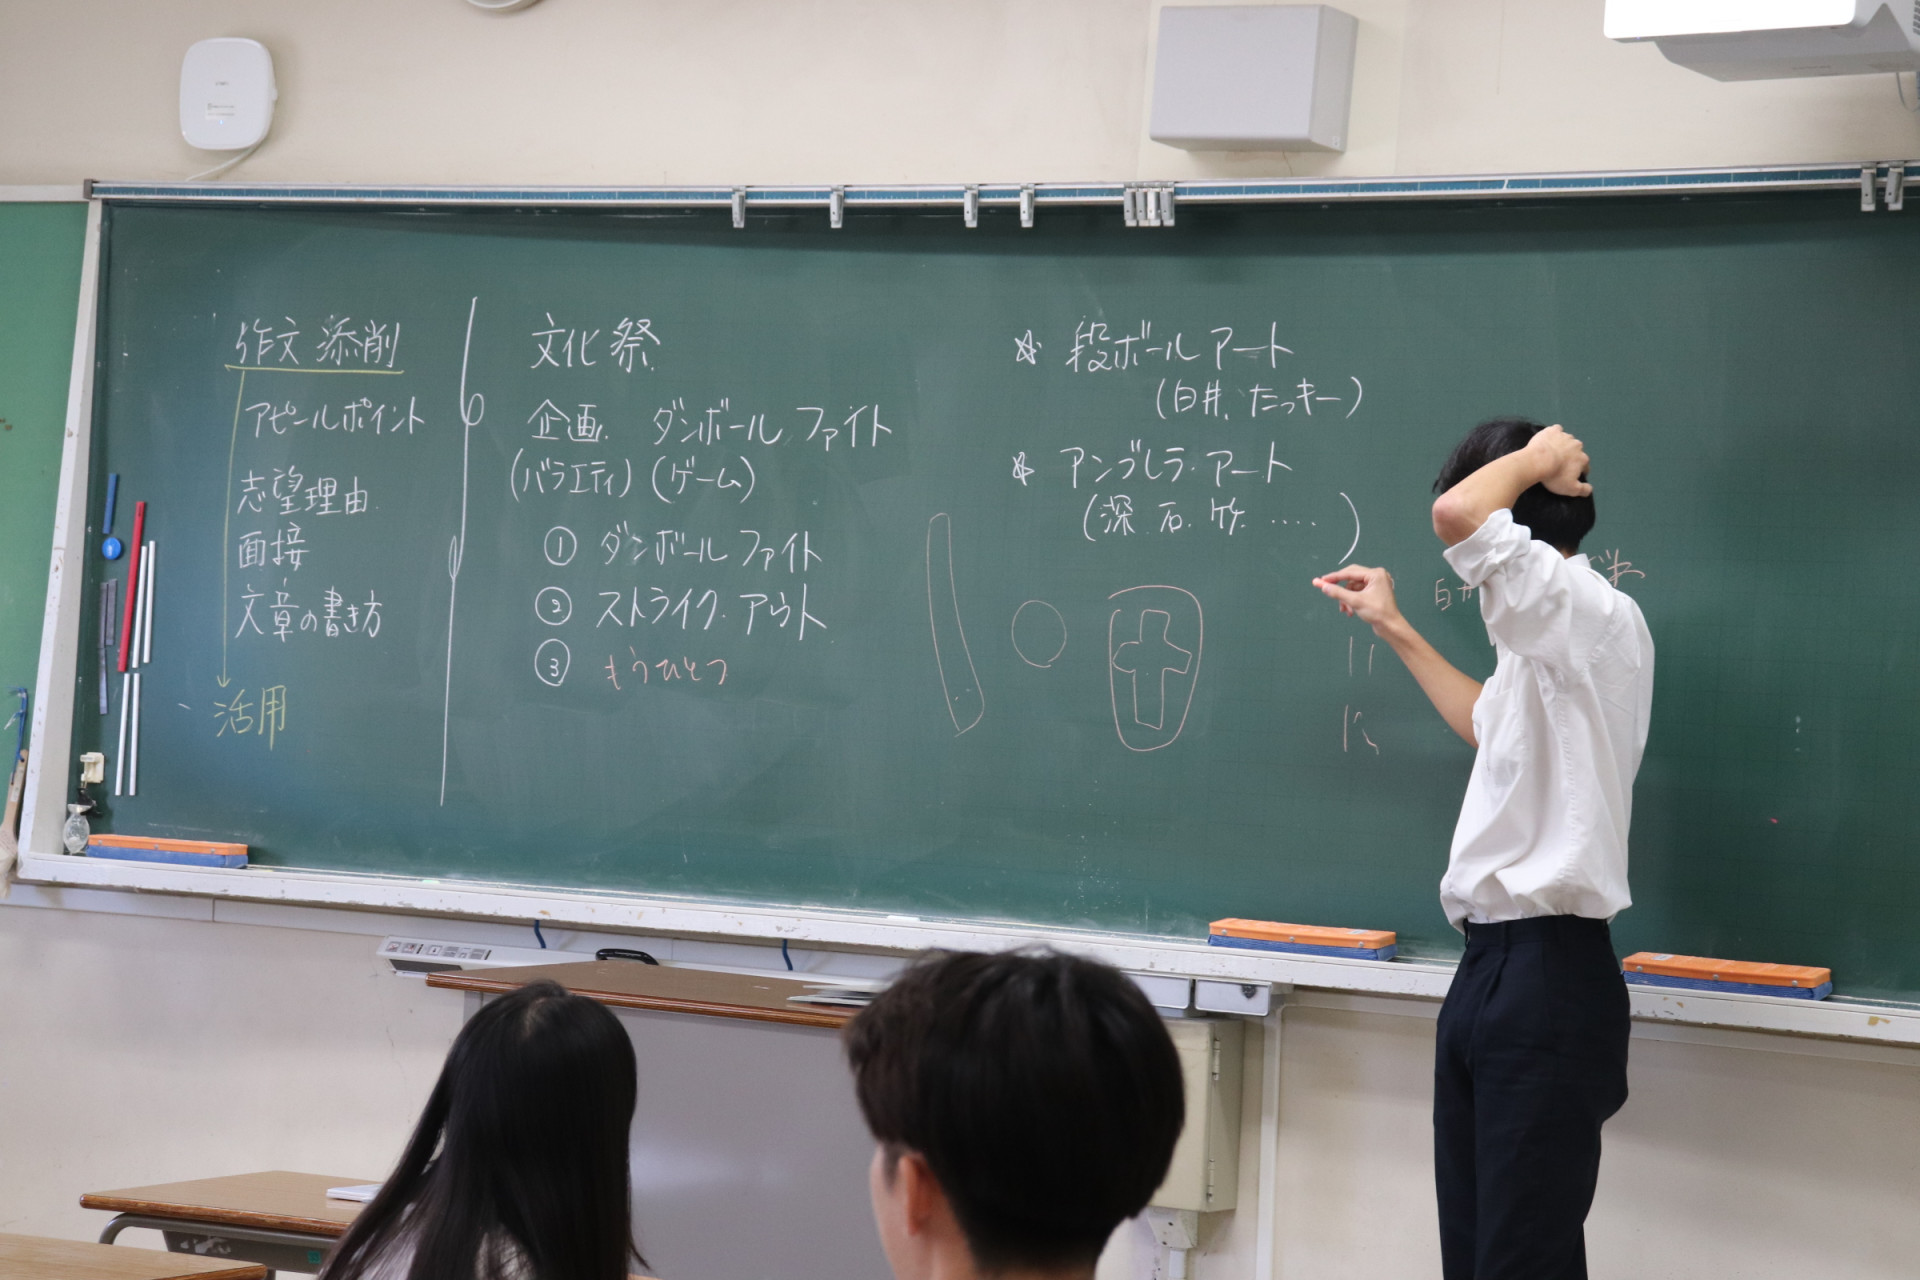 作文添削
アピールポイント
志望理由
面接
文章の書き方
活用
文化祭
企画 ダンボールファイト
(バラエティ)(ゲーム)
① ダンボールファイト
② ストライク・アウト
③ もうひとつ
☆ 段ボールアート
(白井、たっキー)
☆ アンブレラ・アート
(深.石.竹.....)